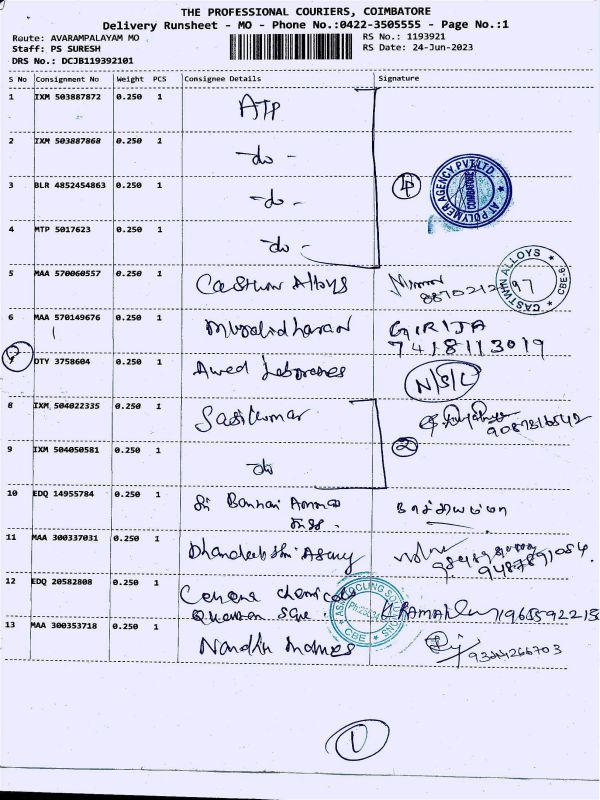 THE PROFESSIONAL COURIERS, COIMBATORE
Delivery Runsheet - MO - Phone No.:0422-3505555 - Page No.:1
Route: AVARAMPALAYAM MO RS No.: 1193921
Staff: PS SURESH RS Date: 24-Jun-2023
DRS No.: DCJB119392101
S No Consignment No Weight PCS Consignee Details Signature
1 IXM 503887872 0.250 1 ATP
2 IXM 503887868 0.250 1 do -
3 BLR 4852454863 0.250 1 -do- 4 AT POLYMER AGENCY PVT LTD COIMBATORE
4 MTP 5017623 0.250 1 do -
5 MAA 570060557 0.250 1 Castwin Alloys CASTWIN ALLOYS CBE-6
6 MAA 570149676 0.250 1 Muralidharan GIRIJA
7418113019
DTY 3758604 0.250 1 N/S/L
8 IXM 504022335 0.250 1 Sasikumar
2
9 IXM 504050581 0.250 1 do
10 EDQ 14955784 0.250 1 Sri Bannari Amman
11 MAA 300337031 0.250 1
9487891084
12 EDQ 20582808 0.250 1 chemicals
CBE
13 MAA 300353718 0.250 1 9344266703
1